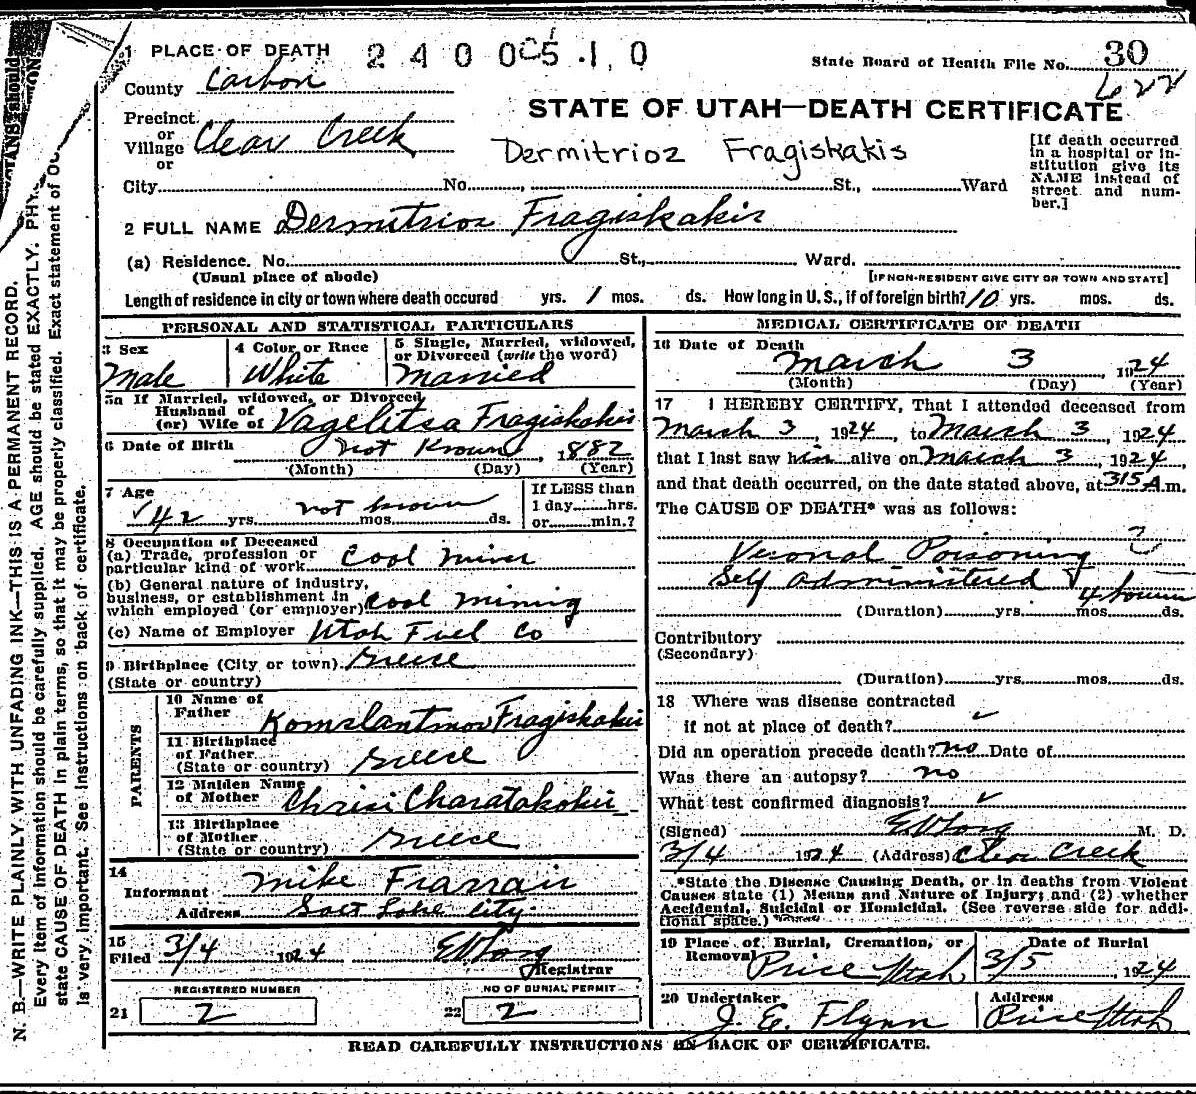 1 PLACE OF DEATH 2 4 0 0 5 1 0
State Board of Health File No. 30
622
County Carbon
STATE OF UTAH—DEATH CERTIFICATE
Precinct
or
Village Clear Creek
or
Dermitrioz Fragiskakis
[If death occurred in a hospital or institution give its NAME instead of street and number.]
City No. , St., Ward
2 FULL NAME Dermitrioz Fragiskakis
(a) Residence. No. St., Ward.
(Usual place of abode) [IF NON-RESIDENT GIVE CITY OR TOWN AND STATE]
Length of residence in city or town where death occured yrs. 1 mos. ds. How long in U. S., if of foreign birth? 10 yrs. mos. ds.
PERSONAL AND STATISTICAL PARTICULARS
3 Sex 4 Color or Race 5 Single, Married, widowed, or Divorced (write the word)
Male White Married
5a If Married, widowed, or Divorced
Husband of
(or) Wife of Vagelitsa Fragiskakis
6 Date of Birth not Known, 1882
(Month) (Day) (Year)
7 Age If LESS than
42 yrs. not known mos. ds. 1 day hrs.
or min.?
8 Occupation of Deceased
(a) Trade, profession or
particular kind of work Cool miner
(b) General nature of Industry,
business, or establishment in
which employed (or employer) Cool mining
(c) Name of Employer Utah Fuel Co
9 Birthplace (City or town) Greese
(State or country)
PARENTS
10 Name of
Father Fragiskakis
11 Birthplace
of Father
(State or country) Greese
12 Maiden Name
of Mother Chrisi
13 Birthplace
of Mother
(State or country) Greese
14
Informant Mike
Address Salt Lake City
15
Filed 3/4 1924 E V Long
Registrar
REGISTERED NUMBER NO OF BURIAL PERMIT
21 2 22 2
MEDICAL CERTIFICATE OF DEATH
16 Date of Death
March 3, 1924
(Month) (Day) (Year)
17 I HEREBY CERTIFY, That I attended deceased from
March 3, 1924, to March 3, 1924
that I last saw him alive on March 3, 1924,
and that death occurred, on the date stated above, at 315 A.m.
The CAUSE OF DEATH* was as follows:
Veronal Poisoning ?
Self administered
4 hours
(Duration) yrs. mos. ds.
Contributory
(Secondary)
(Duration) yrs. mos. ds.
18 Where was disease contracted
if not at place of death? ✓
Did an operation precede death? no Date of
Was there an autopsy? no
What test confirmed diagnosis? ✓
(Signed) E V Long M. D.
3/4 1924 (Address) Clear Creek
*State the Disease Causing Death, or in deaths from Violent
Causes state (1) Means and Nature of Injury; and (2) whether
Accidental, Suicidal or Homicidal. (See reverse side for addi-
tional space.)
19 Place of Burial, Cremation, or Removal Date of Burial
Price Utah 3/5, 1924
20 Undertaker Address
J. E. Flynn Price Utah
READ CAREFULLY INSTRUCTIONS ON BACK OF CERTIFICATE.
N. B.—WRITE PLAINLY, WITH UNFADING INK—THIS IS A PERMANENT RECORD.
Every item of information should be carefully supplied. AGE should be stated EXACTLY. PHY
state CAUSE OF DEATH in plain terms, so that it may be properly classified. Exact statement of OC
is very important. See instructions on back of certificate.